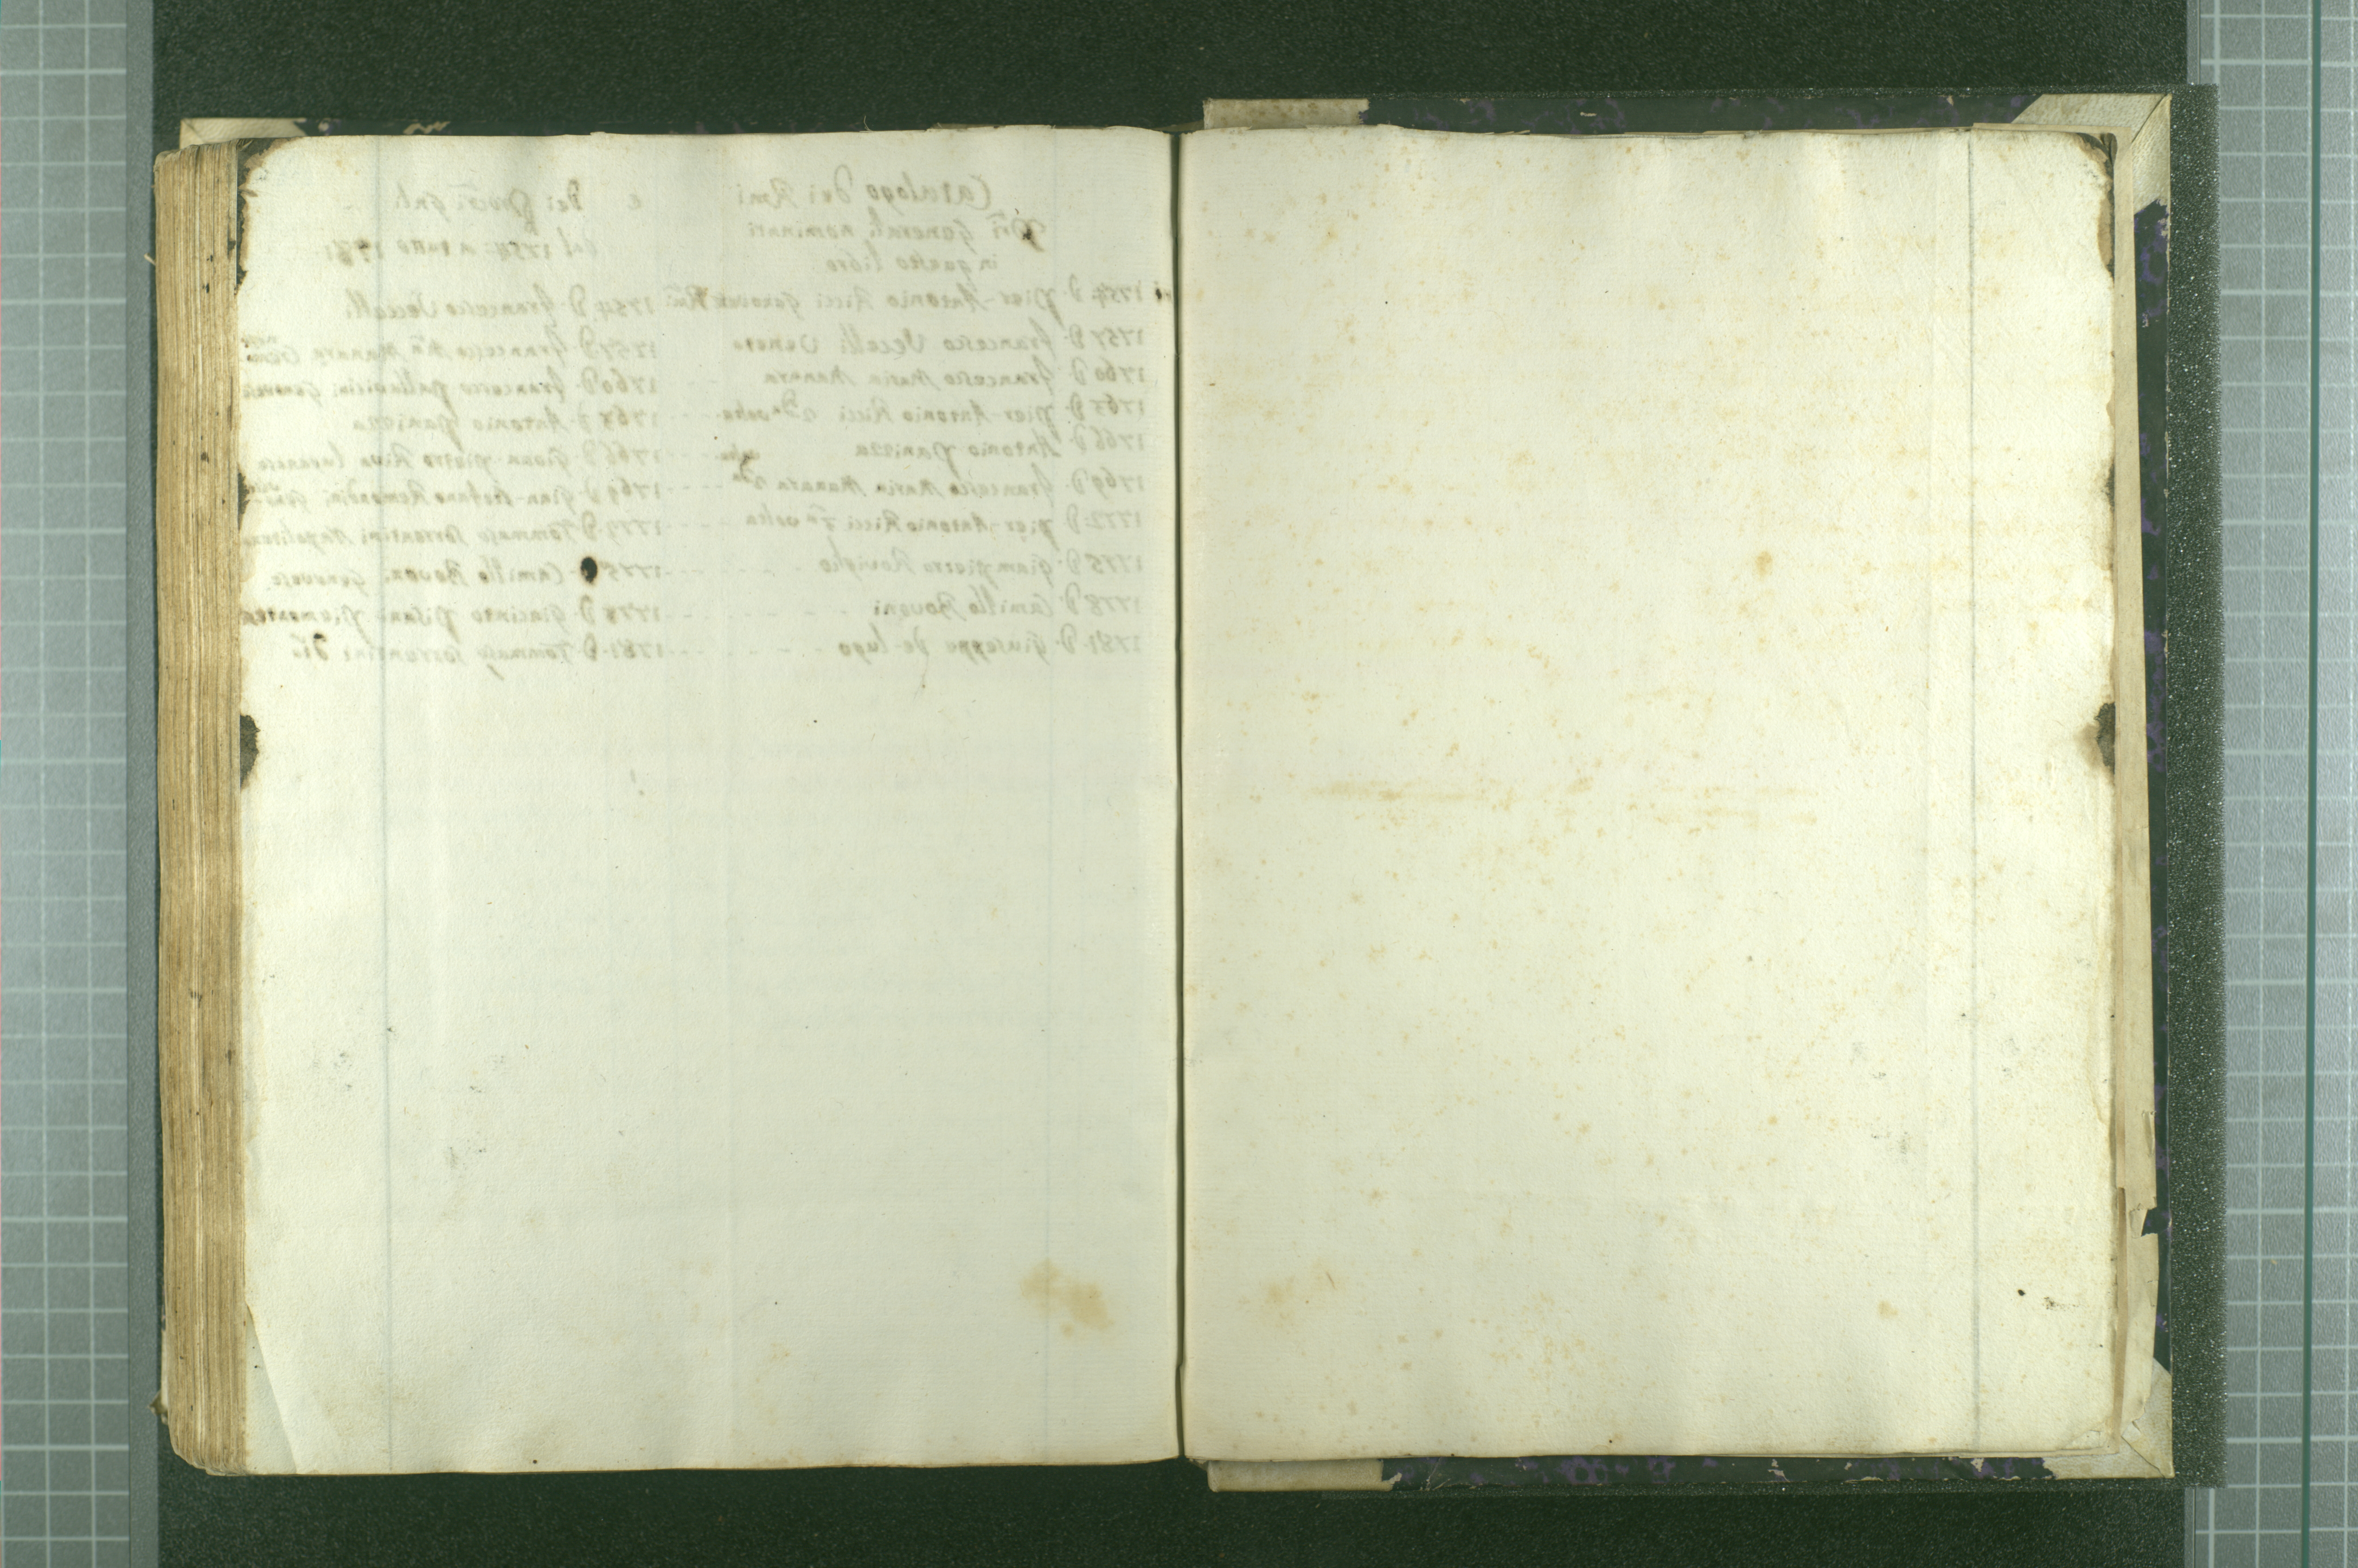 Catalogo dei Rmi e dei Procri Gnli
Pri Generali nominati dal 1754 a tutto 1781
in questo libro
1754 D. Pier-Antonio Ricci Genovese 1754 D. Francesco Vecelli
1757 D. Francesco Vecelli Veneto 1757 D. Francesco Ma Manara
1760 D. Francesco Maria Manara 1760 D. Francesco Pallavicini Genovese
1763 D. Pier-Antonio Ricci 2a volta 1763 D. Antonio Panizza
1766 D. Antonio Panizza 1766 D. Pietro Riva Luganese
1769 D. Francesco Maria Manara 2a volta 1769 D. Gian-Stefano Remondini
1772 D. Pier-Antonio Ricci 3a volta D. Tommaso Sorrentini Napolitano
1775 D. Giampietro Roviglio 1775 Camillo Bovoni Genovese
1778 D. Camillo Bovoni 1778 D. Giacinto Pisani Piemontese
1781 D. Giuseppe de Lugo 1781 D. Tommaso Sorrentini